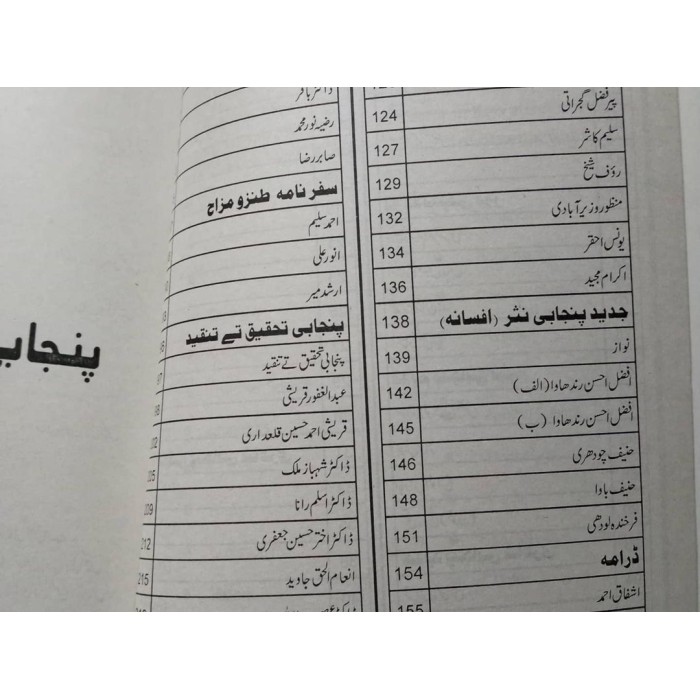 پیر فضل گجراتی 124
سلیم کاشر 127
رؤف شیخ 129
منظور وزیر آبادی 132
یونس احقر 134
اکرام مجید 136
جدید پنجابی نثر (افسانہ) 138
نواز 139
افضل احسن رندھاوا (الف) 142
افضل احسن رندھاوا (ب) 145
حنیف چودھری 146
حنیف باوا 148
فرخندہ لودھی 151
ڈرامہ 154
اشفاق احمد 155
ڈاکٹر باقر
رضیہ نور محمد
صابر رضا
سفر نامہ طنز و مزاح
احمد سلیم
انور علی
ارشد میر
پنجابی تحقیق تے تنقید
پنجابی تحقیق تے تنقید
عبدالغفور قریشی
قریشی احمد حسین قلعداری
ڈاکٹر شہباز ملک
ڈاکٹر اسلم رانا
ڈاکٹر اختر حسین جعفری 212
انعام الحق جاوید 215
پنجاب